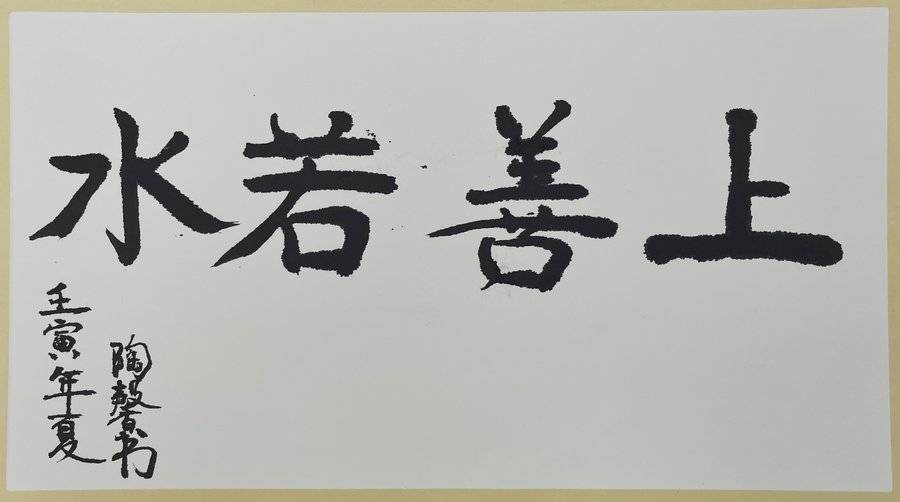 上善若水
陶馨书
壬寅年夏